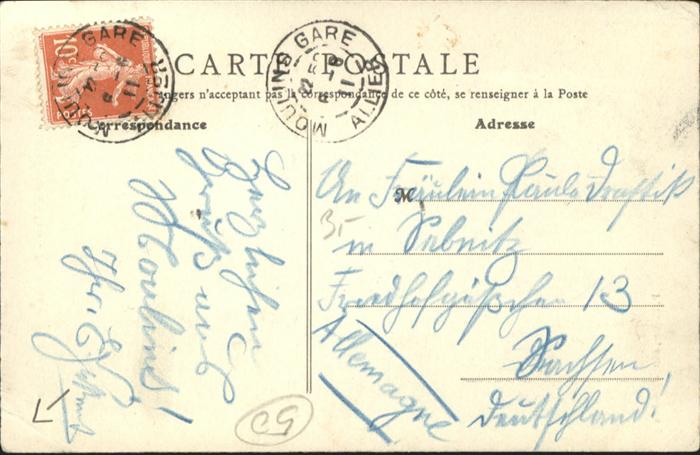 CARTE POSTALE
étrangers n'acceptant pas la correspondance de ce côté, se renseigner à la Poste
Correspondance
Adresse
MOULINS GARE
ALLIER
10c
MOULINS GARE
ALLIER
Herzlichen
Gruß aus
Moulins!
Ihr. E.
An Fräulein Paula
M
in Sebnitz
Friedhofgäßchen 13
Sachsen,
Deutschland!
Allemagne
50